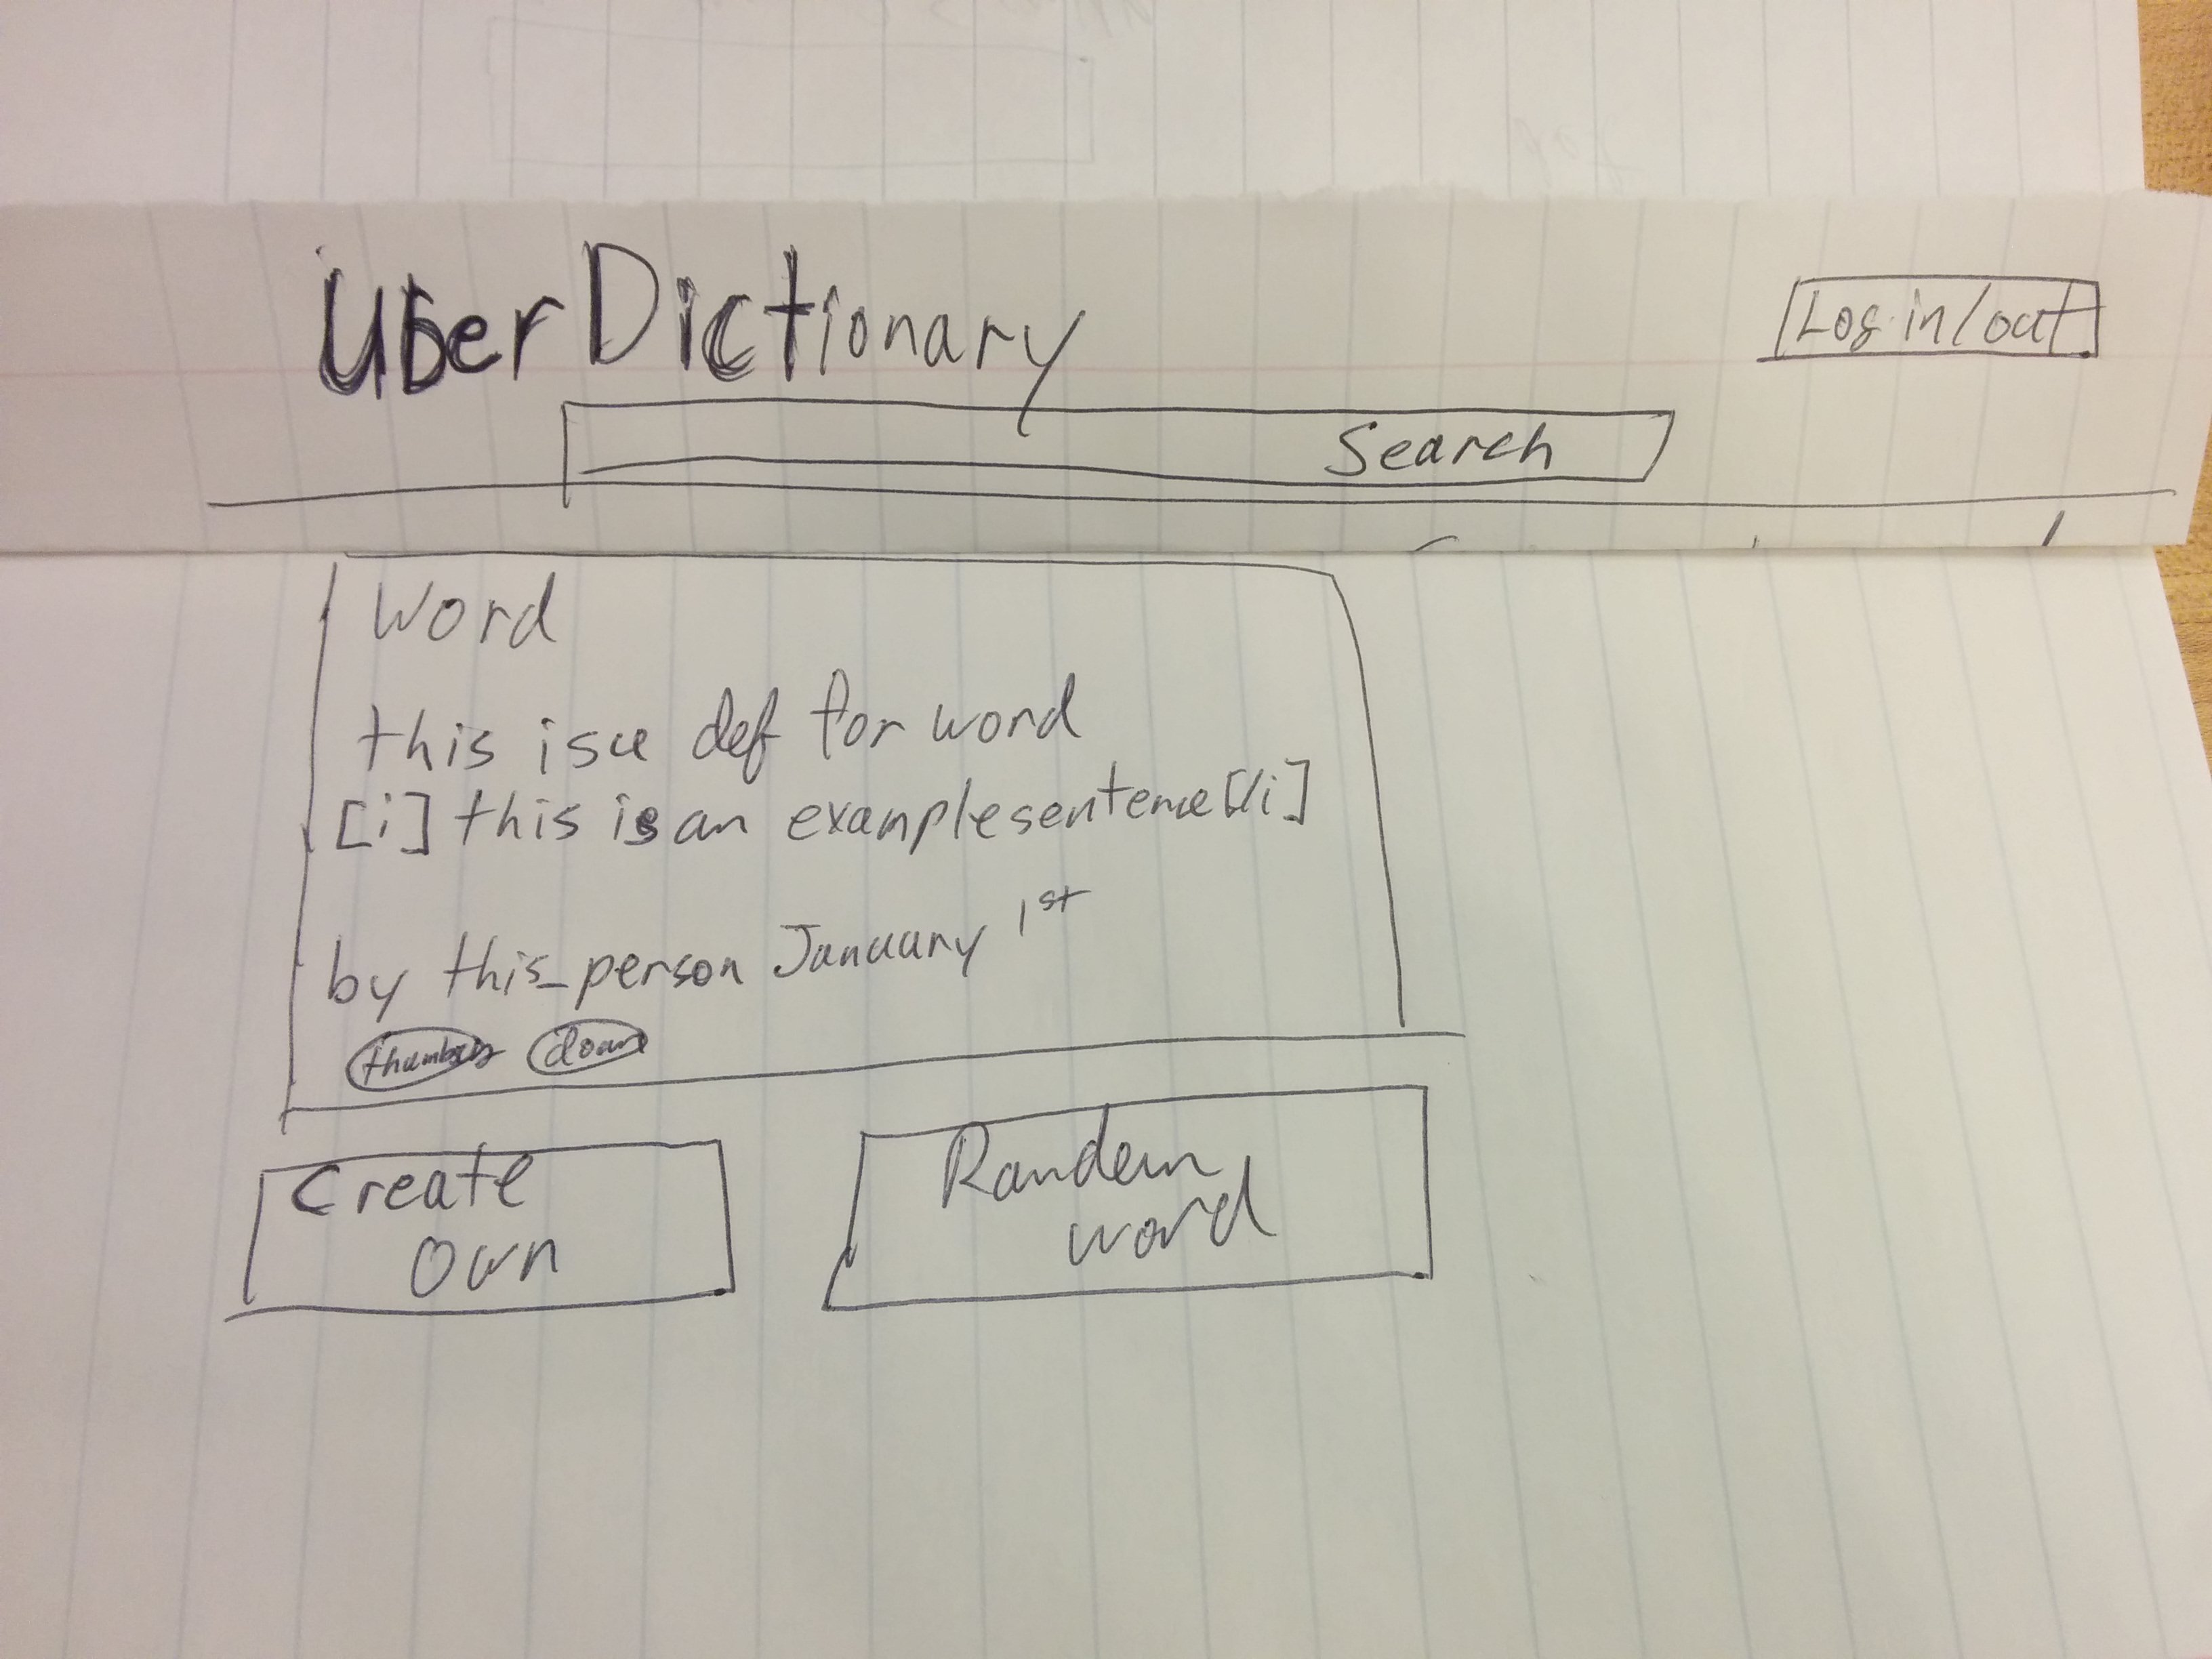 UberDictionary
Log in/out
Search
Word
this is a def for word
[i] this is an example sentence [/i]
by this_person January 1st
thumbs down
Create
Own
Random
word